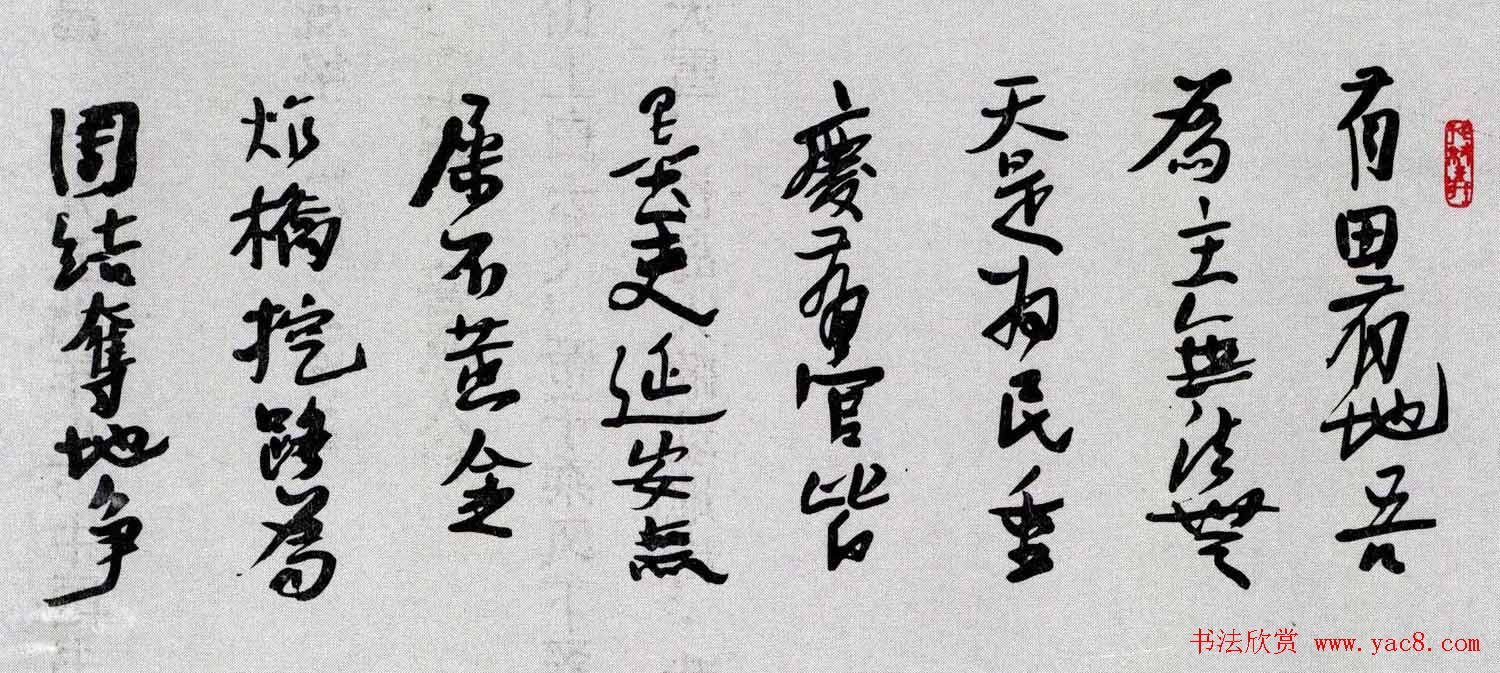 有田有地吾
為主無法無
天是为民重
慶有官皆
墨吏延安無
屎不黄金
炸橋挖路為
團結奪地争
书法欣赏 www.yac8.com